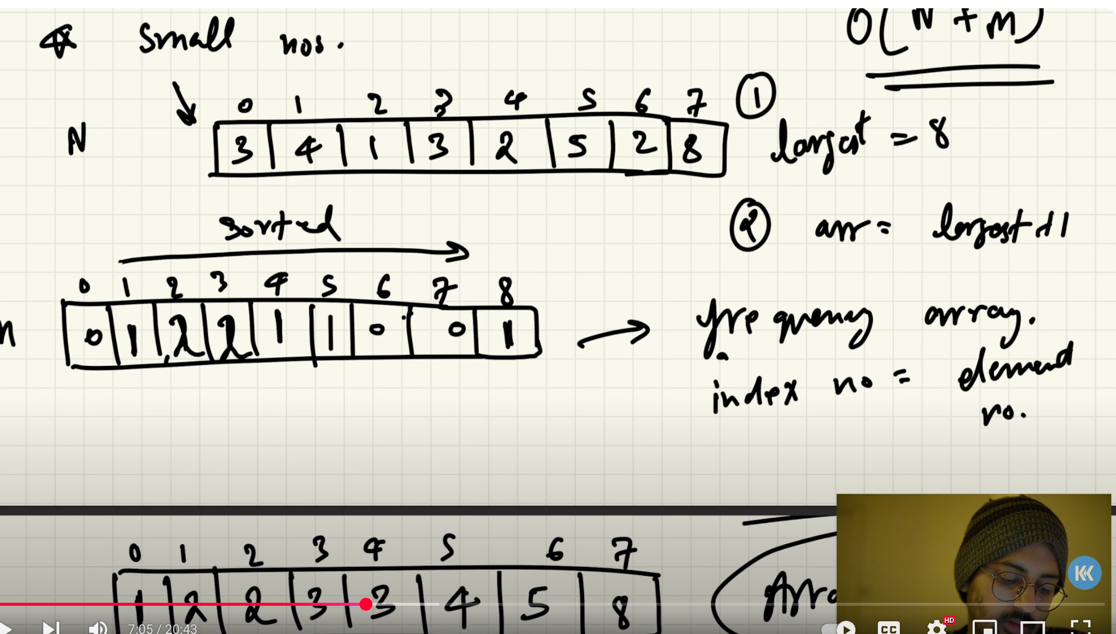 small nos.
O(N + M)
0 1 2 3 4 5 6 7
N
3 4 1 3 2 5 2 8
①
largest = 8
sorted
② arr = largest+1
0 1 2 3 4 5 6 7 8
0 1 2 2 1 1 0 0 1
frequency array.
index no = element
no.
0 1 2 3 4 5 6 7
1 2 2 3 3 4 5 8
KK
7:05 / 20:43
CC
HD